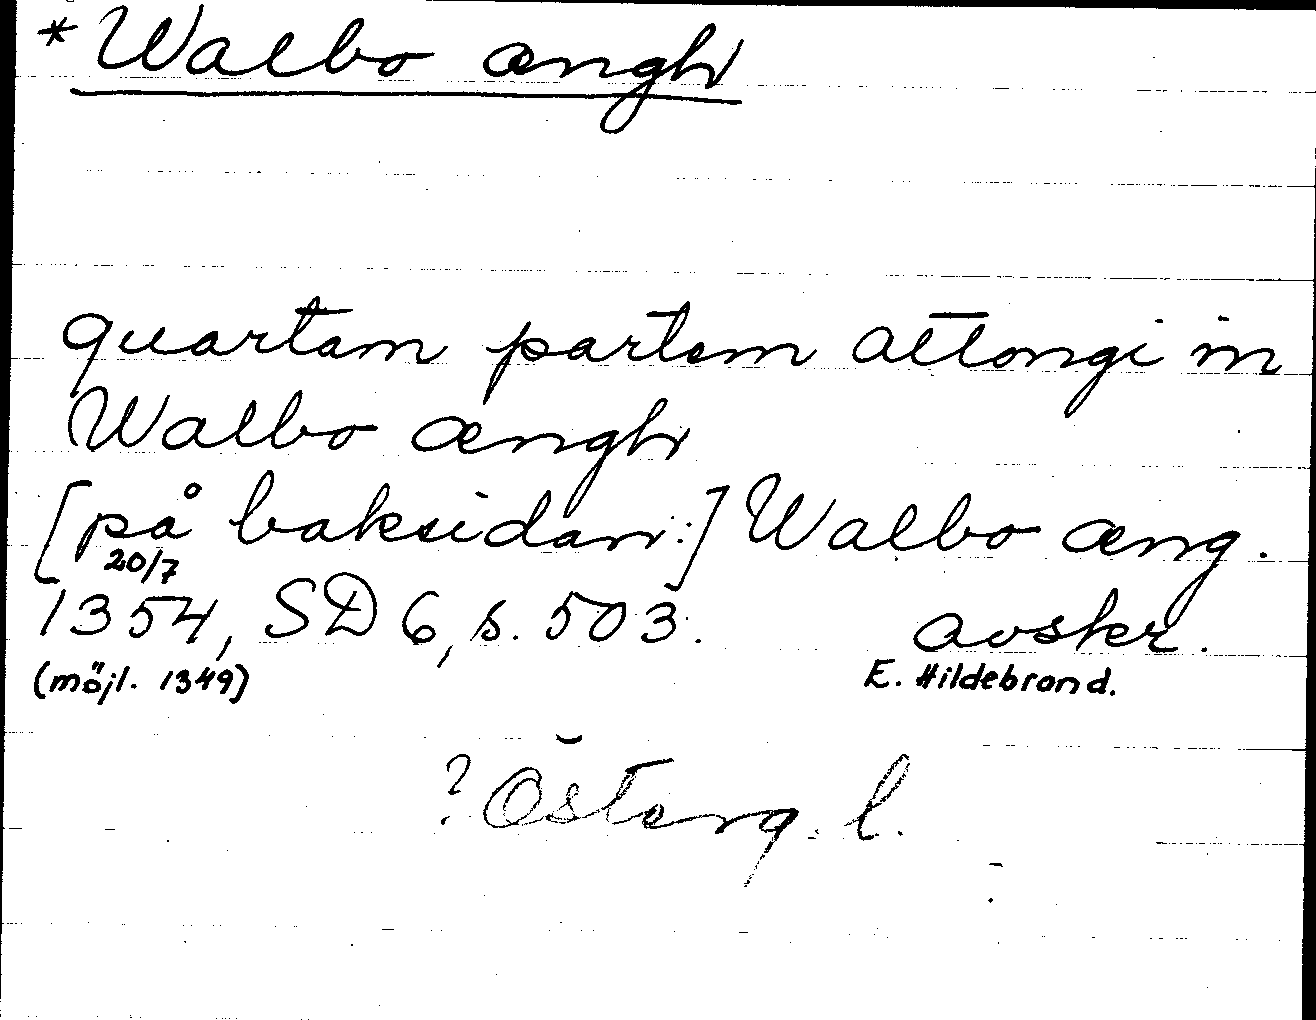 *Walbo ængh
quartam partem attongi in
Walbo ængh
[på baksidan:] Walbo æng.
20/7
1354, SD 6, s. 503. avskr.
(möjl. 1349) E. Hildebrand.
? Österg. l.